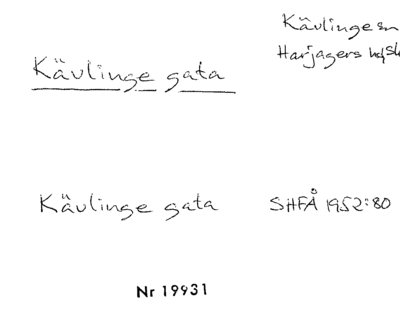 Kävlinge sn
Harjagers hd, Sk
Kävlinge gata
Kävlinge gata SHFÅ 1952:80
Nr 19931